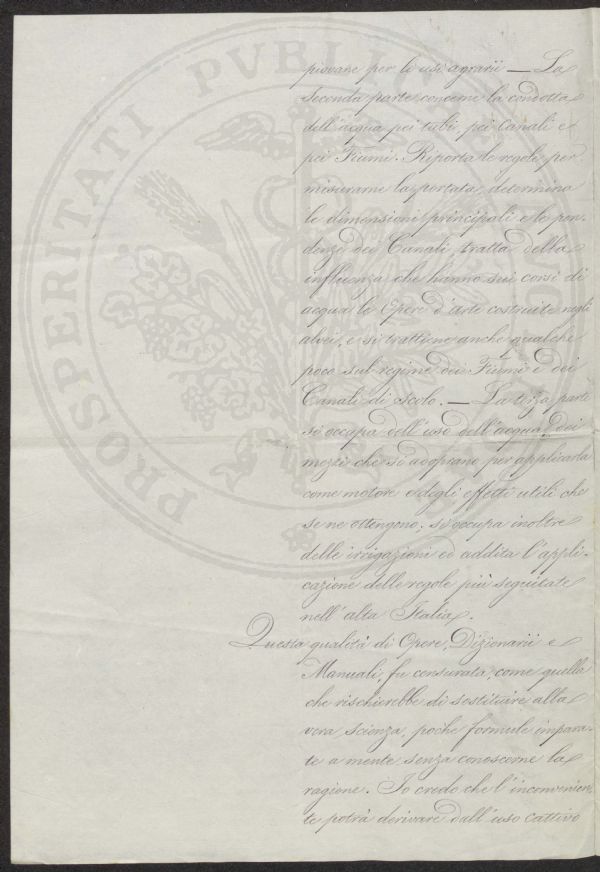 piovane per li usi agrarii — La
seconda parte concerne la condotta
dell'acqua pei tubi pei Canali e
pei Fiumi. Riporta le regole per
misurarne la portata, determina
le dimensioni principali e le pen-
denze dei Canali, tratta della
influenza che hanno sui corsi di
acqua le Opere d'arte costruite negli
alvei, e si trattiene anche qualche
poco sul regime dei Fiumi e dei
Canali di scolo. — La terza parte
si occupa dell'uso dell'acqua, dei
mezzi che si adoprano per applicarla
come motore e degli effetti utili che
se ne ottengono; si occupa inoltre
delle irrigazioni ed addita l'appli-
cazione delle regole più seguitate
nell'alta Italia.
Questa qualità di Opere, Dizionarii e
Manuali, fu censurata, come quella
che rischierebbe di sostituire alla
vera scienza, poche formule impara-
te a mente senza conoscerne la
ragione. Io credo che l'inconvenien-
te potrà derivare dall'uso cattivo
PROSPERITATI PVBLICAE